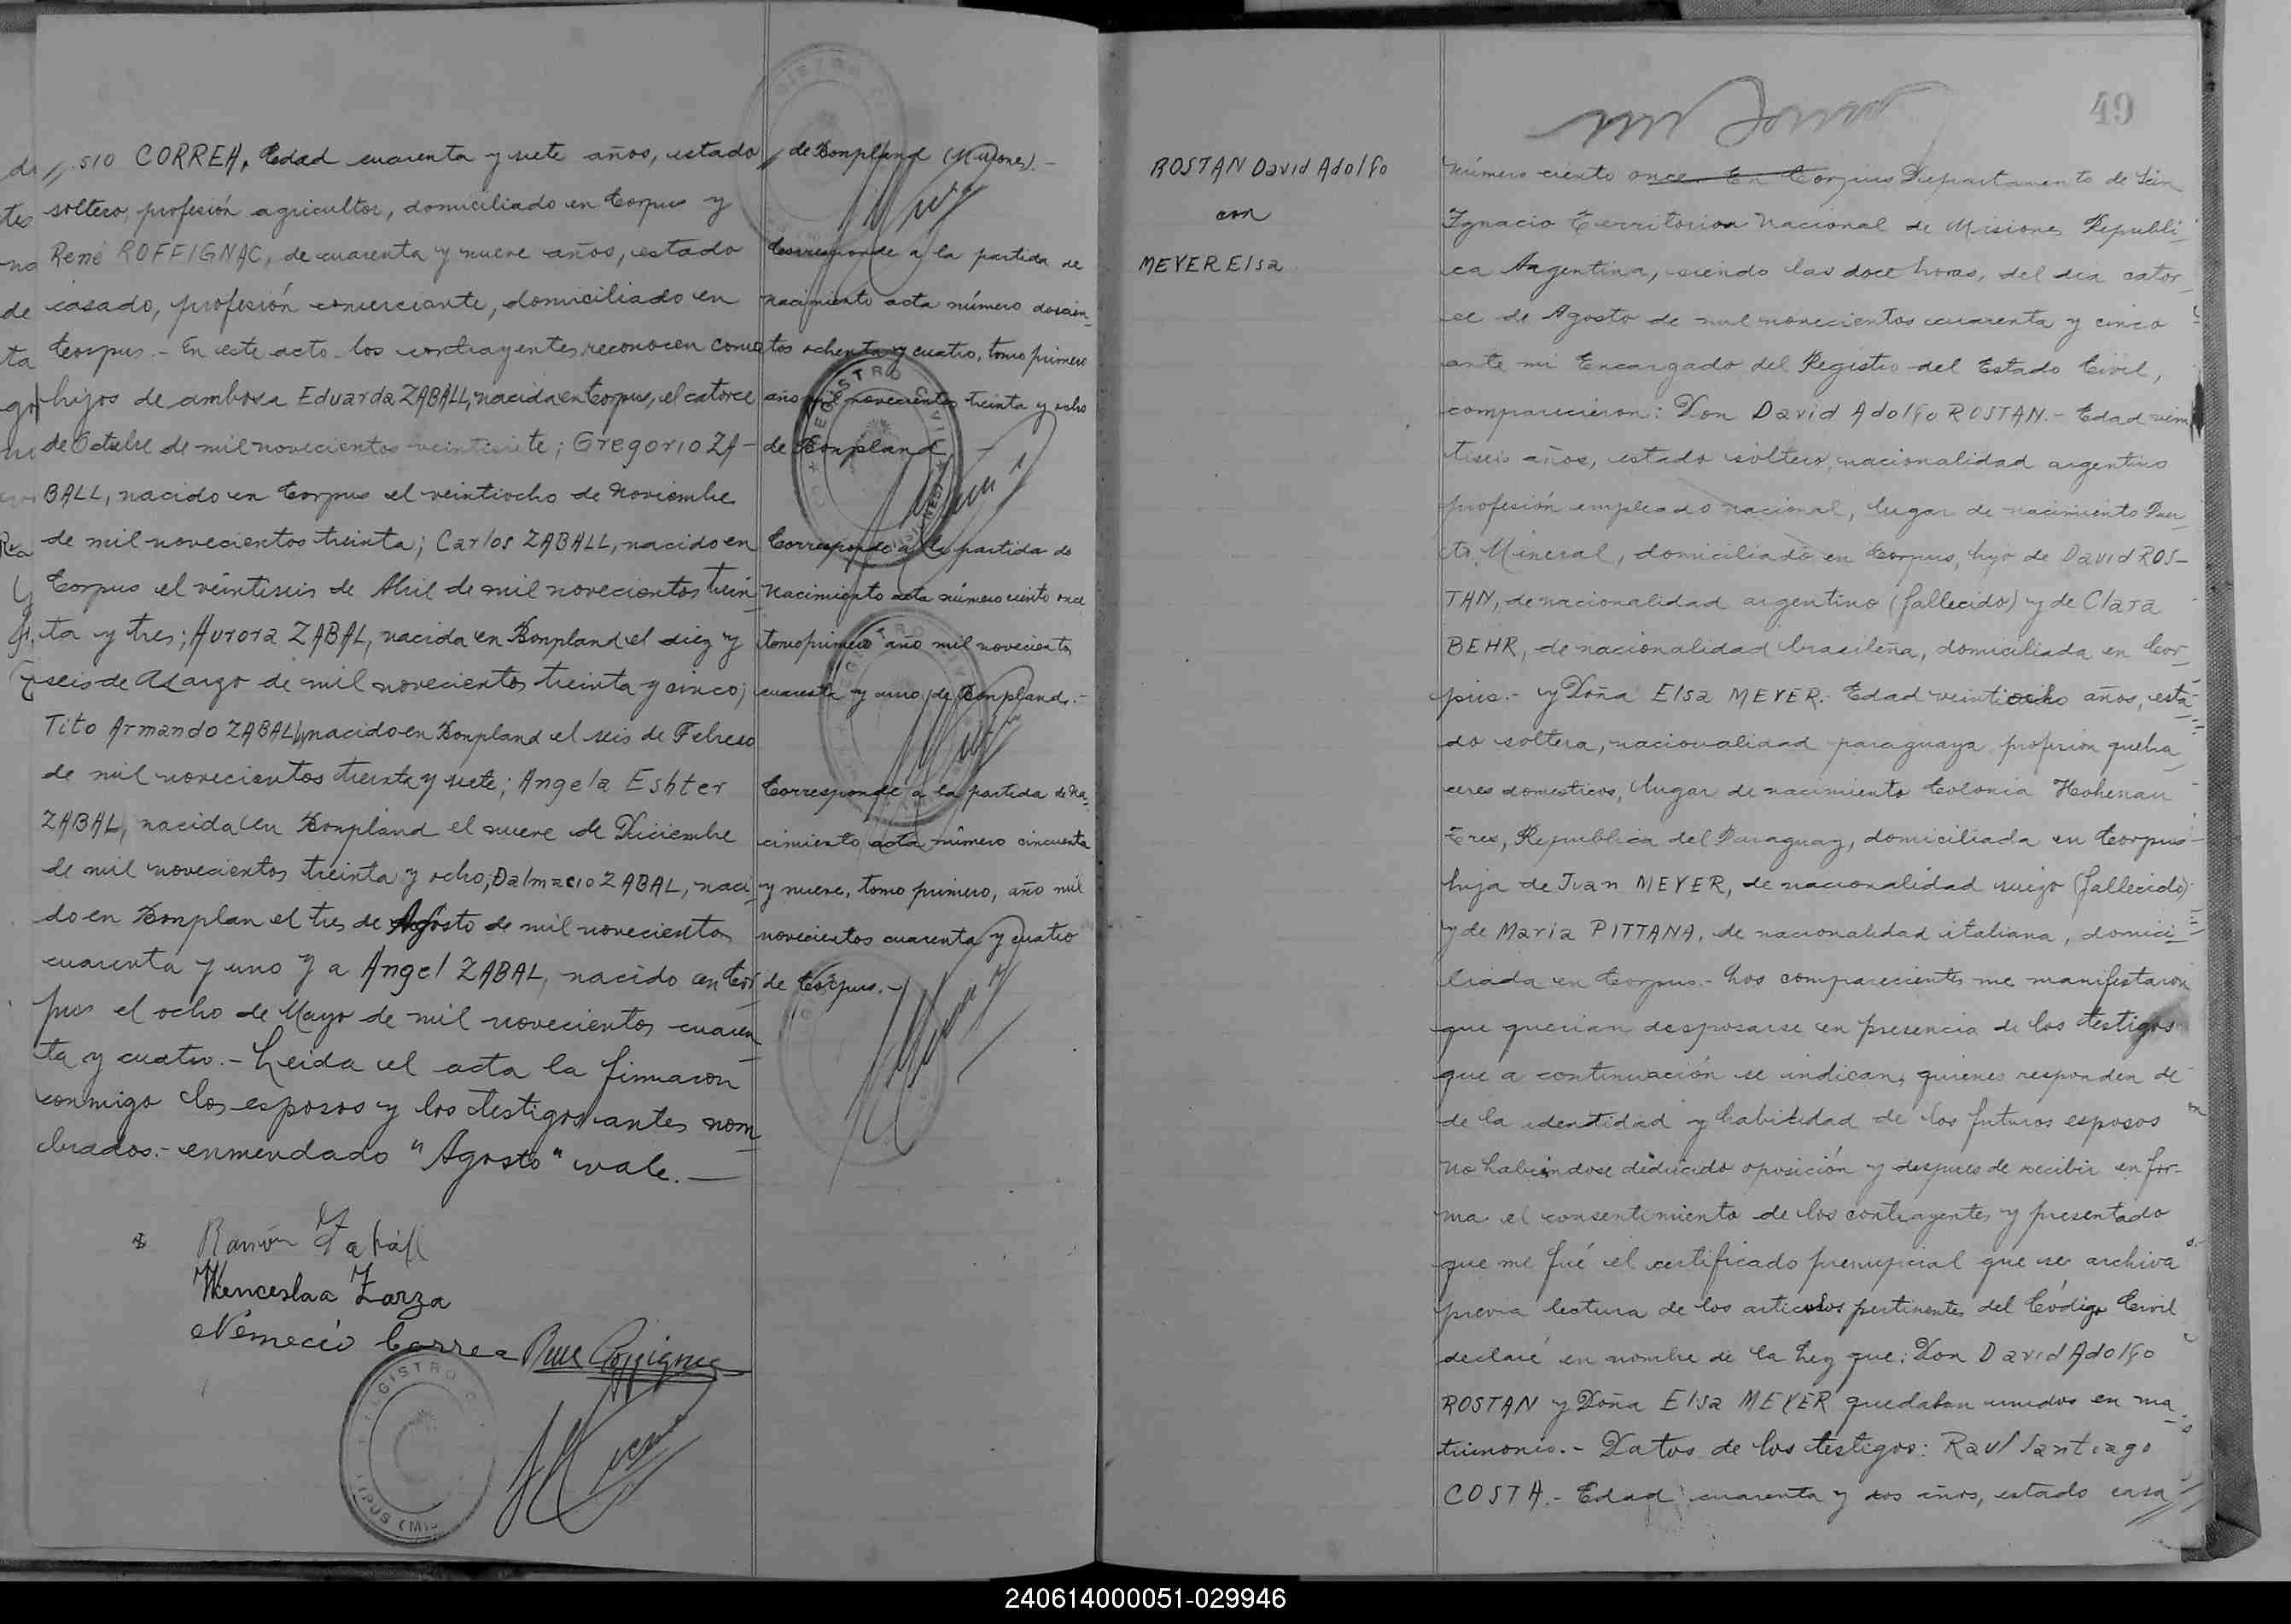 sio CORREA, Edad cuarenta y siete años, estado
soltero, profesión agricultor, domiciliado en Corpus y
René ROFFIGNAC, de cuarenta y nueve años, estado
casado, profesión comerciante, domiciliado en
Corpus.- En este acto los contrayentes reconocen como
hijos de ambos a Eduarda ZABALL, nacida en Corpus, el catorce
de Octubre de mil novecientos veintisiete; Gregorio ZA-
BALL, nacido en Corpus el veintiocho de Noviembre
de mil novecientos treinta; Carlos ZABALL, nacido en
Corpus el veintiseis de Abril de mil novecientos trein
ta y tres; Aurora ZABAL, nacida en Bonpland el diez y
seis de Marzo de mil novecientos treinta y cinco;
Tito Armando ZABALL, nacido en Bonpland el seis de Febrero
de mil novecientos treinta y siete; Angela Eshter
ZABAL, nacida en Bonpland el nueve de Diciembre
de mil novecientos treinta y ocho; Dalmacio ZABAL, naci
do en Bonplan el tres de Agosto de mil novecientos
cuarenta y uno y a Angel ZABAL, nacido en Cor
pus el ocho de Mayo de mil novecientos cuaren
ta y cuatro.- Leida el acta la firmaron
conmigo los esposos y los testigos antes nom
brados.- enmendado "Agosto" vale.-
Ramón Zaball
Wenceslaa Zarza
Nemecio Correa
de Bonpland (Misiones).-
Corresponde a la partida de
nacimiento acta número doscien-
tos ochenta y cuatro, tomo primero
año mil novecientos treinta y ocho
de Bonpland
REGISTRO CIVIL
Corresponde a la partida de
Nacimiento acta número ciento once
tomo primero año mil novecientos
cuarenta y uno de Bonpland.-
Corresponde a la partida de Na-
cimiento acta número cincuenta
y nueve, tomo primero, año mil
novecientos cuarenta y cuatro
de Corpus.-
ROSTAN David Adolfo
con
MEYER Elsa
49
Número ciento once. En Corpus Departamento de San
Ignacio Territorio Nacional de Misiones Republi-
ca Argentina, siendo las doce horas, del dia cator-
ce de Agosto de mil novecientos cuarenta y cinco
ante mi Encargado del Registro del Estado Civil,
comparecieron: Don David Adolfo ROSTAN.- Edad vein
tiseis años, estado soltero, nacionalidad argentino
profesión empleado nacional, lugar de nacimiento Puer-
to Mineral, domiciliado en Corpus, hijo de David ROS-
TAN, de nacionalidad argentino (fallecido) y de Clara
BEHR, de nacionalidad brasileña, domiciliada en Cor-
pus.- y Doña Elsa MEYER.- Edad veintiocho años, esta-
do soltera, nacionalidad paraguaya profesión queha-
ceres domesticos, lugar de nacimiento Colonia Hohenau
Tres, Republica del Paraguay, domiciliada en Corpus
hija de Ivan MEYER, de nacionalidad suizo (fallecido)
y de Maria PITTANA, de nacionalidad italiana, domici-
liada en Corpus.- Los comparecientes me manifestaron
que querian desposarse en presencia de los testigos
que a continuación se indican, quienes responden de
de la identidad y habilidad de los futuros esposos
No habiendose deducido oposición y despues de recibir en for-
ma el consentimiento de los contrayentes y presentado
que me fué el certificado prenupcial que se archiva
previa lectura de los articulos pertinentes del Código Civil
declaré en nombre de la Ley que: Don David Adolfo
ROSTAN y Doña Elsa MEYER quedaban unidos en ma-
trimonio.- Datos de los testigos: Raul Santiago
COSTA.- Edad cuarenta y dos años, estado casa
240614000051-029946